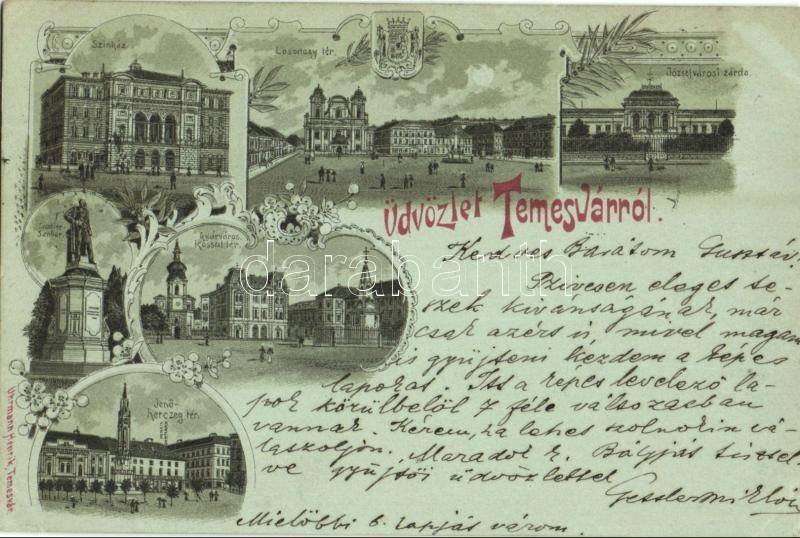 Szinház
Losonczy tér.
Józsefvárosi zárda
Üdvözlet Temesvárról.
Scudier Szobor
Gyárváros.
Kossuth tér.
Jenő-
Herczeg tér.
Uhrmann Henrik, Temesvár
darabanth
Kedves Barátom Gusztáv!
Szivesen eleget te-
szek kivánságának, már
csak azért is mivel magam
is gyüjteni kezdem a képes
lapokat. Itt a képes levelező la-
pok körülbelől 7 féle változatban
vannak. Kérem, ha lehet szolnokin vá-
laszoljon. Maradok k. Bátyjás
ve gyüjtői üdvözlettel
Mielőbbi b. lapját várom.